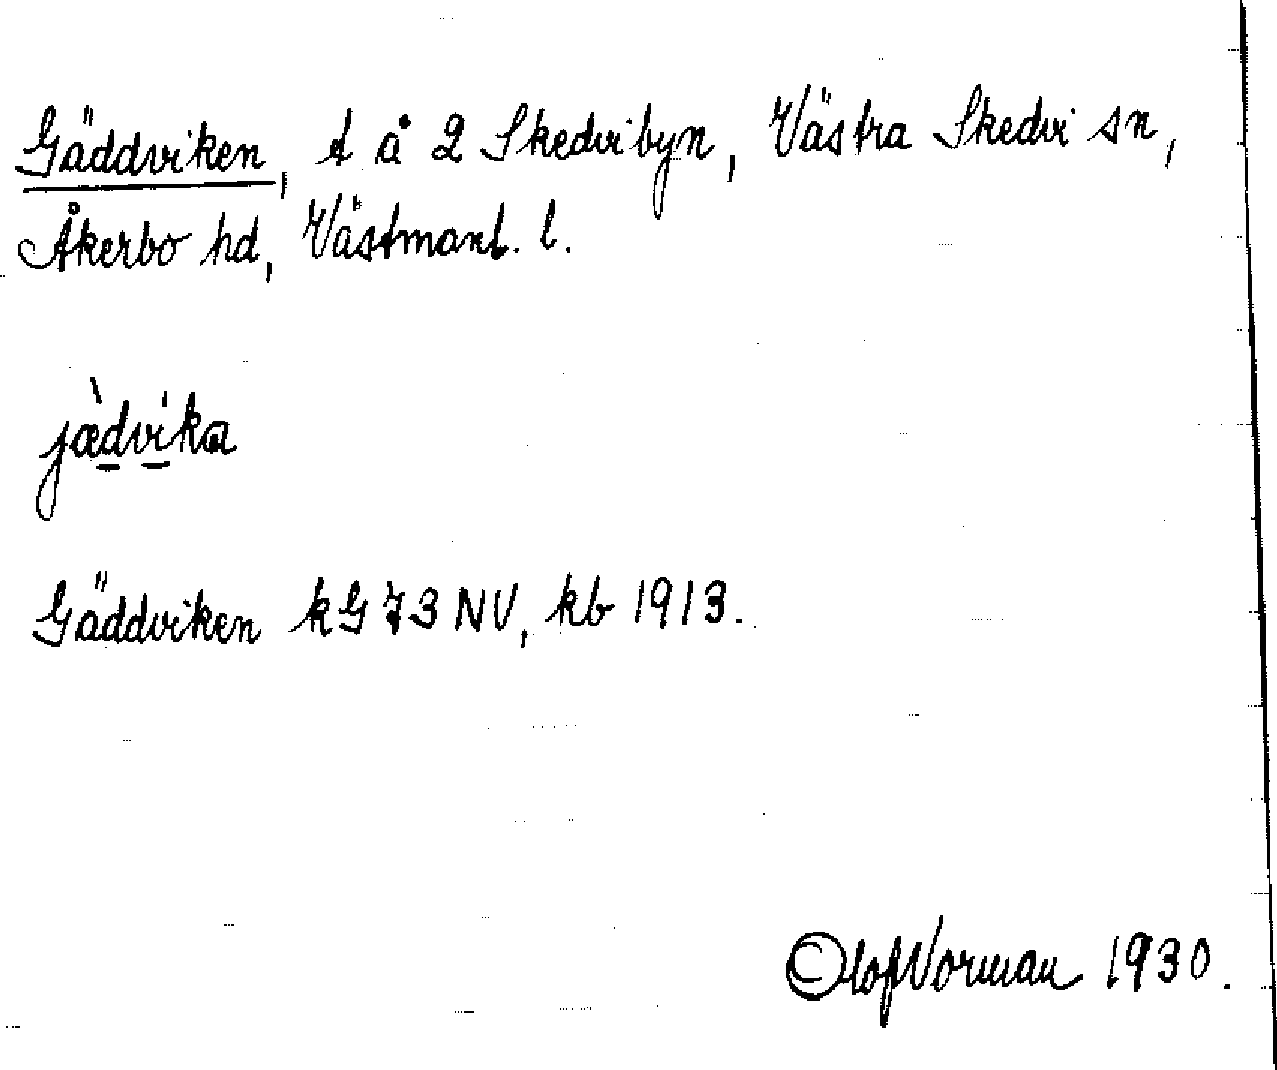 Gäddviken, t å 2 Skedvibyn, Västra Skedvi sn,
Åkerbo hd, Västmanl. l.
jæ̀dvika
Gäddviken kG 73 NV, kb 1913.
Olof Vorman 1930.